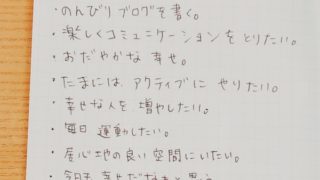 ・のんびりブログを書く。
・楽しくコミュニケーションをとりたい。
・おだやかな幸せ。
・たまには、アクティブにやりたい。
・幸せな人を、増やしたい。
・毎日運動したい。
・居心地の良い空間にいたい。
・今日も幸せだなあと思う